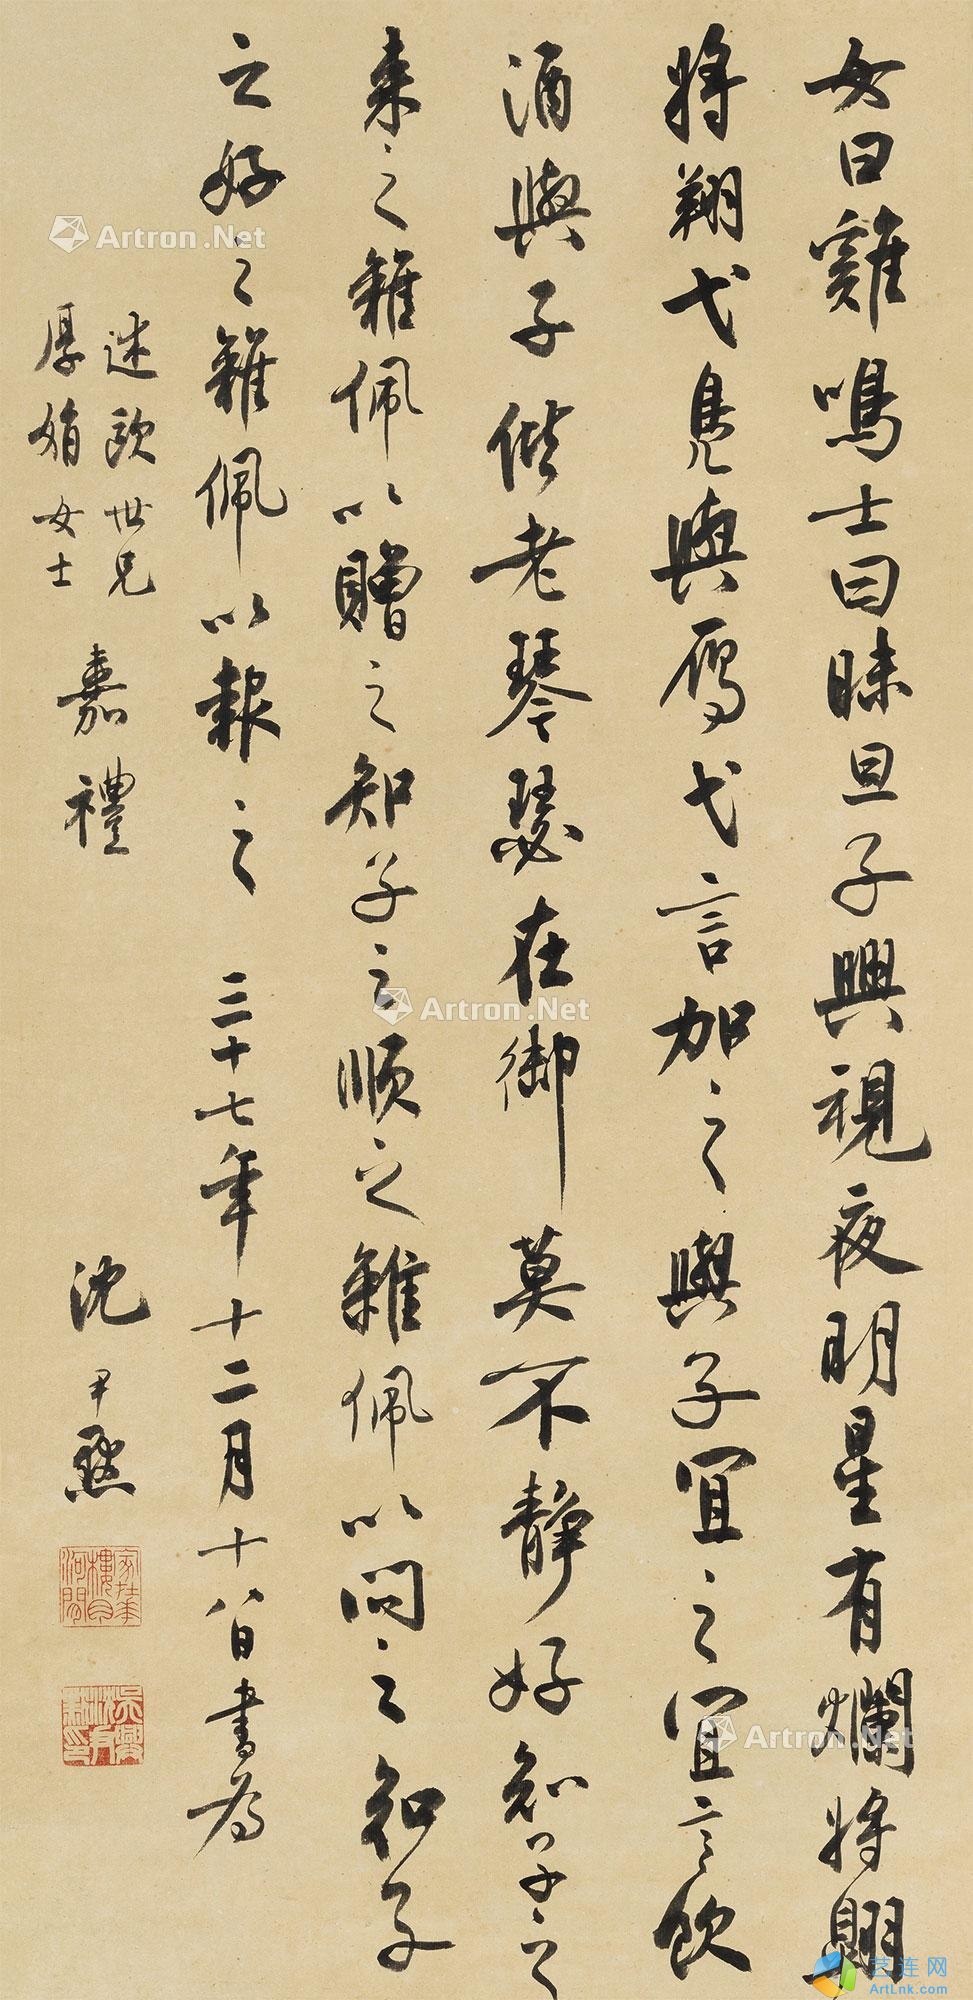 女曰雞鳴士曰昧旦子興視夜明星有爛將翱
將翔弋鳧與雁弋言加之與子宜之宜言飲
酒與子偕老琴瑟在御莫不靜好知子之
来之雜佩以贈之知子之順之雜佩以問之知子
之好之雜佩以報之 三十七年十二月十八日書為
述欧世兄
厚娟女士 嘉禮
沈尹默
Artron.Net
Artron.Net
Artron.Net
艺连网
ArtLnk.com